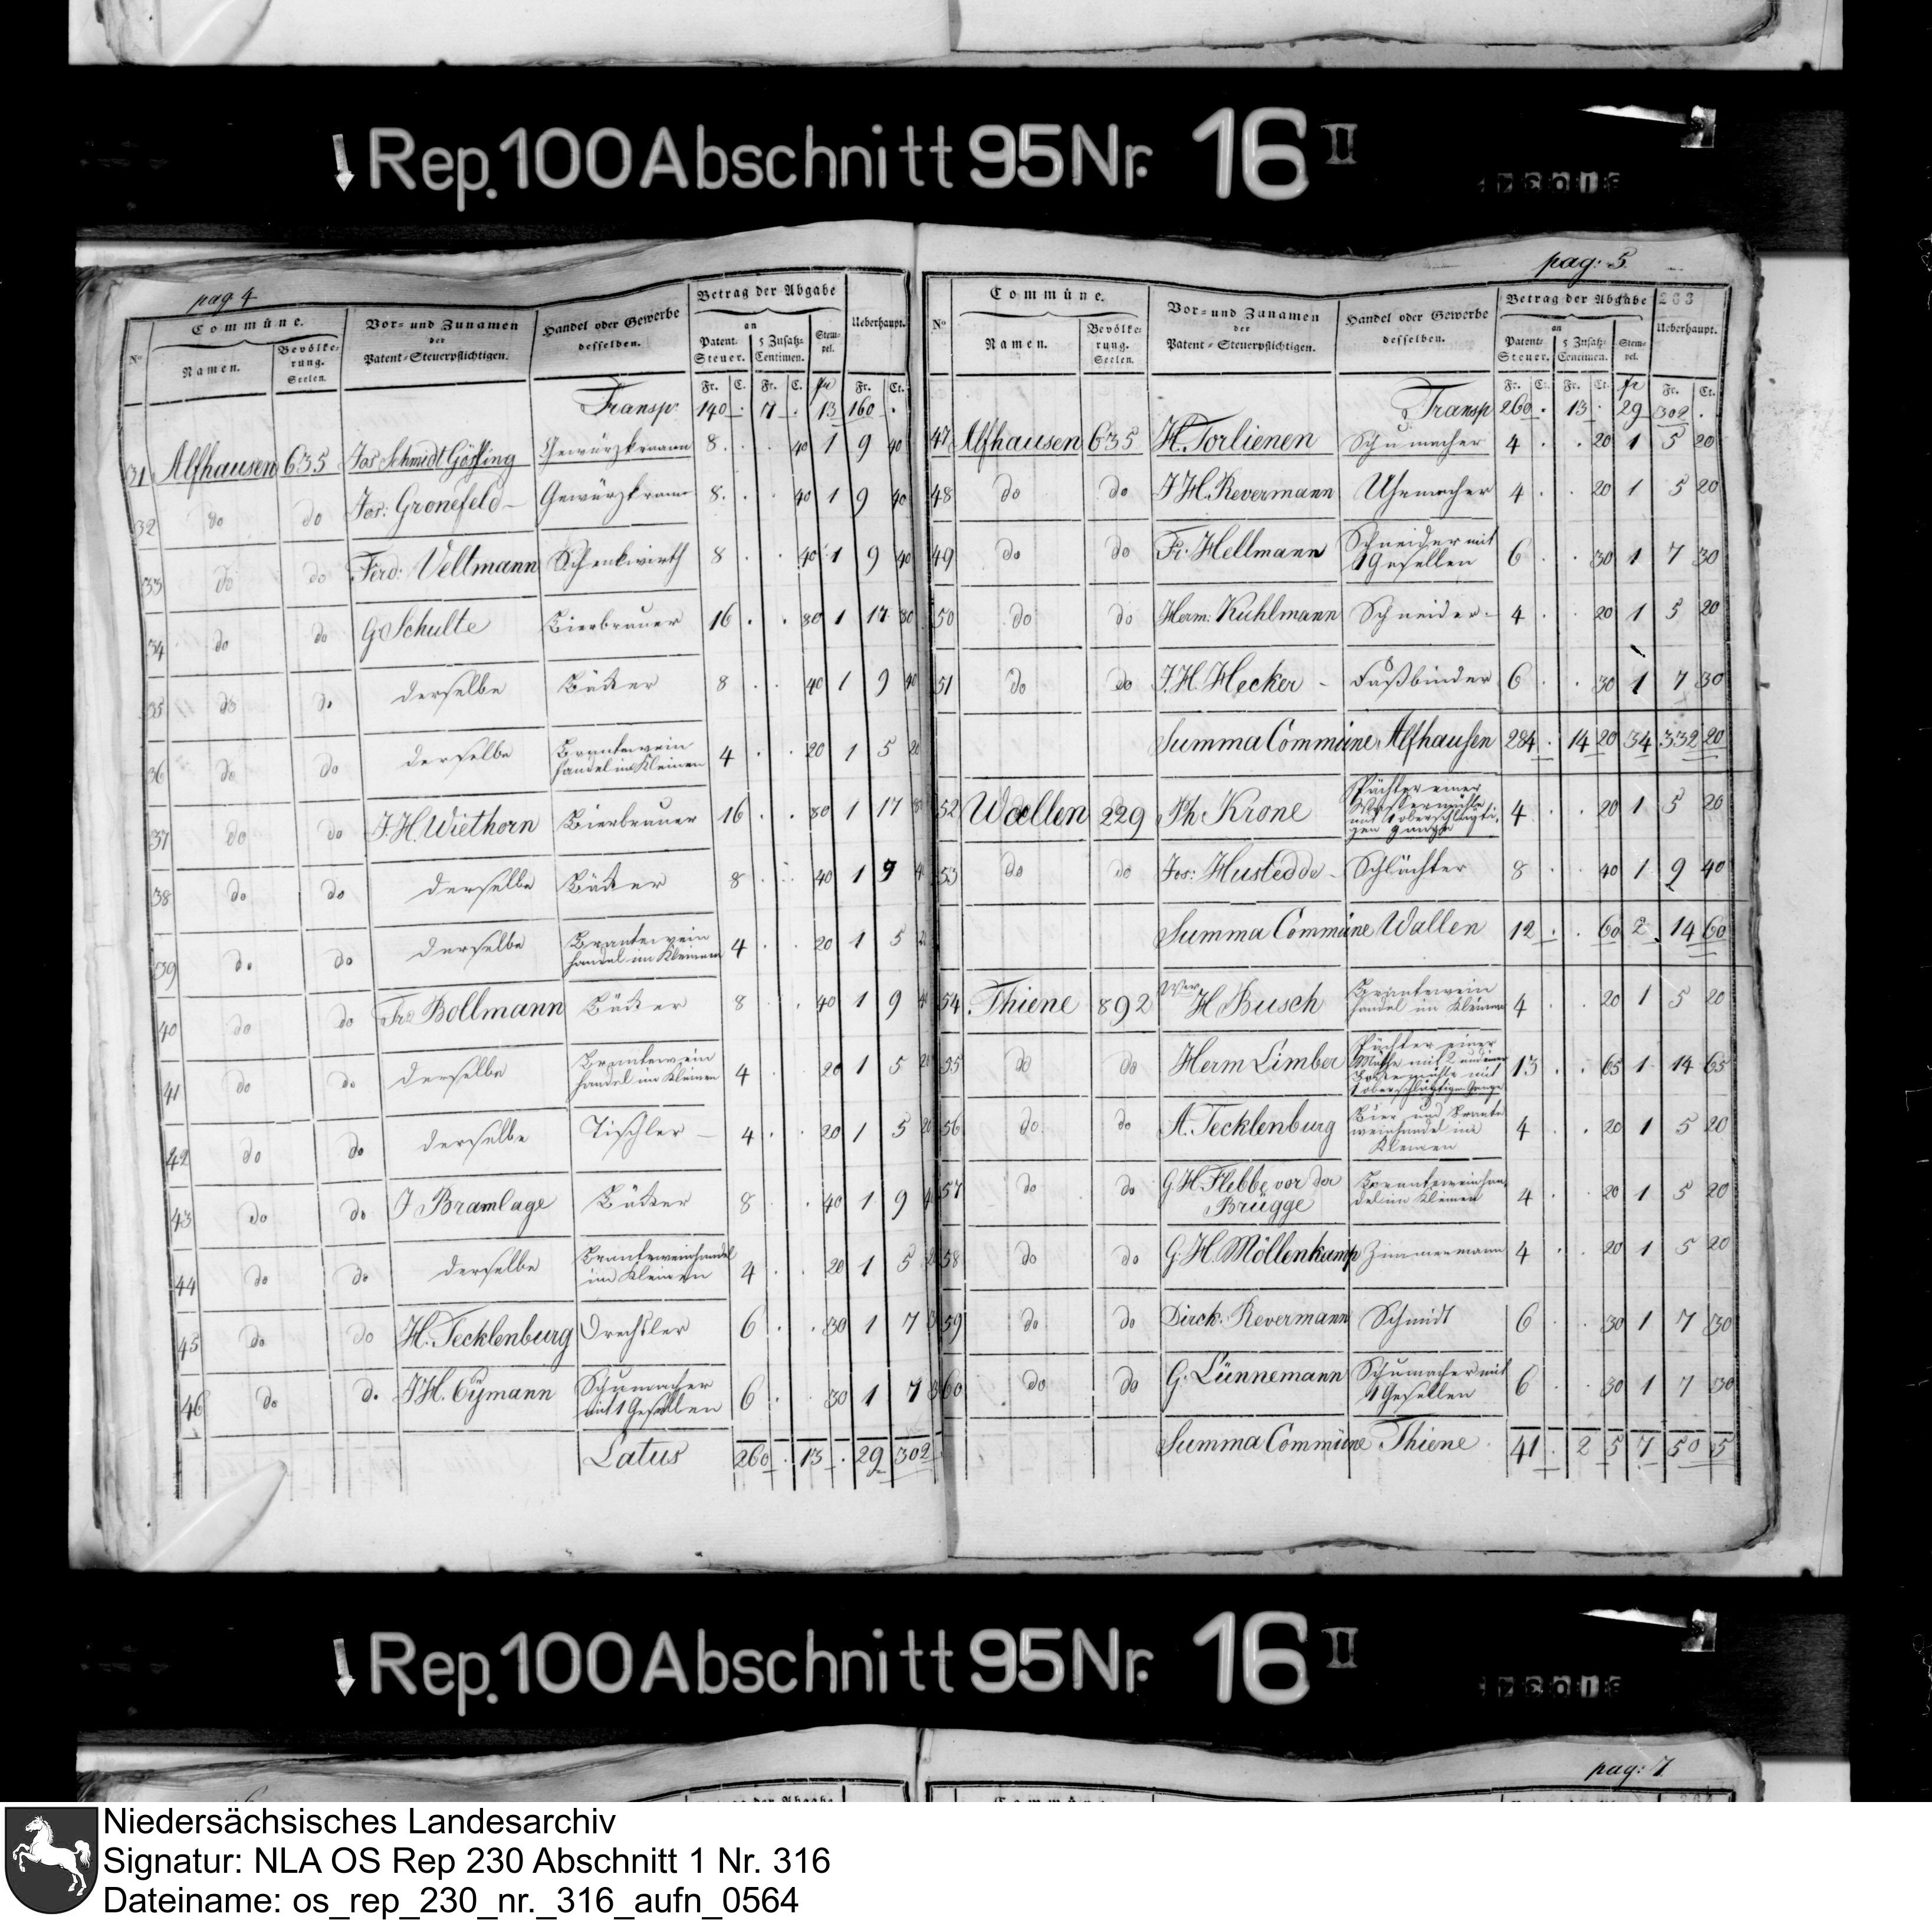 Rep. 100 Abschnitt 95 Nr. 16 II
pag 4
Commüne.
Vor- und Zunamen der Patent-Steuerpflichtigen.
Handel oder Gewerbe desselben.
Betrag der Abgabe
Ueberhaupt.
No
Namen.
Bevölkerung. Seelen.
an Patent-Steuer.
5 Zusatz-Centimen.
Stempel.
Fr. C. Fr. C. fr Fr. Ct.
Transp. 140 . 7 . 13 160 .
31 Alfhausen 635 Jos Schmidt Gösling Gewürzkraam 8 . . 40 1 9 40
32 do do Jos: Gronefeld Gewürzkram 8 . . 40 1 9 40
33 do do Ferd: Veltmann Schenkwirth 8 . . 40 1 9 40
34 do do G Schulte Bierbrauer 16 . . 80 1 17 80
35 do do derselbe Bäcker 8 . . 40 1 9 40
36 do do derselbe Brantewein
handel im Kleinen 4 . . 20 1 5 20
37 do do J.H. Wiethorn Bierbrauer 16 . . 80 1 17 80
38 do do derselbe Bäcker 8 . . 40 1 9 4
39 do do derselbe Brantewein
handel im Kleinen 4 . . 20 1 5 2
40 do do Fr: Bollmann Bäcker 8 . . 40 1 9 4
41 do do derselbe Brantewein
handel im Kleinen 4 . . 20 1 5 20
42 do do derselbe Tischler 4 . . 20 1 5 20
43 do do J Bramlage Bäcker 8 . . 40 1 9 4
44 do do derselbe Branteweinhandel
im Kleinen 4 . . 20 1 5 2
45 do do H. Tecklenburg Drechsler 6 . . 30 1 7 3
46 do do J.H. Eÿmann Schumacher
mit 1 Gesellen 6 . . 30 1 7 3
Latus 260 . 13 . 29 302
pag: 5
263
Commüne.
Vor- und Zunamen der Patent-Steuerpflichtigen.
Handel oder Gewerbe desselben.
Betrag der Abgabe
Ueberhaupt.
No
Namen.
Bevölkerung. Seelen.
an Patent-Steuer.
5 Zusatz-Centimen.
Stempel.
Fr. Ct. Fr. Ct. fr Fr. Ct.
Transp 260 . 13 . 29 302 .
47 Alfhausen 635 H. Torlienen Schumacher 4 . . 20 1 5 20
48 do do J H. Revermann Uhrmacher 4 . . 20 1 5 20
49 do do Fr: Hellmann Schneider mit
1 Gesellen 6 . . 30 1 7 30
50 do do Herm: Kuhlmann Schneider 4 . . 20 1 5 20
51 do do J.H. Hecker Faßbinder 6 . . 30 1 7 30
Summa Commüne Alfhausen 284 . 14 20 34 332 20
52 Wallen 229 Ph Krone Pächter einer
Wassermühle
mit 1 oberschlägti-
gen gange 4 . . 20 1 5 20
53 do do Jos: Hustedde Schlächter 8 . . 40 1 9 40
Summa Commüne Wallen 12 . . 60 2 14 60
54 Thiene 892 Wwe H Busch Brantewein
handel im Kleinen 4 . . 20 1 5 20
55 do do Herm Limber Pächter einer
Mühle mit 2 und einer
mit
1 oberschlägtigen Gange 13 . . 65 1 14 65
56 do do A. Tecklenburg Bier und Brante
weinhandel im
Kleinen 4 . . 20 1 5 20
57 do do G.H. Flebbe vor der
Brügge Branteweinhan
del im Kleinen 4 . . 20 1 5 20
58 do do G.H. Möllenkamp Zimmermann 4 . . 20 1 5 20
59 do do Dirck. Revermann Schmidt 6 . . 30 1 7 30
60 do do G. Lünnemann Schumacher mit
1 Gesellen 6 . . 30 1 7 30
Summa Commüne Thiene 41 . 2 5 7 50 5
Rep. 100 Abschnitt 95 Nr. 16 II
pag: 7
Niedersächsisches Landesarchiv
Signatur: NLA OS Rep 230 Abschnitt 1 Nr. 316
Dateiname: os_rep_230_nr._316_aufn_0564